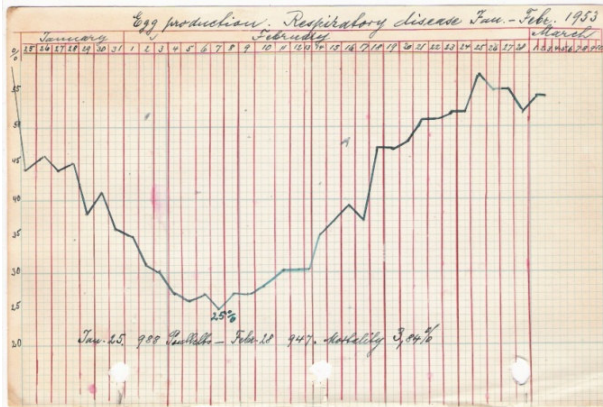 Egg production. Respiratory disease Jan. - Febr. 1953
January February March
% 25 26 27 28 29 30 31 1 2 3 4 5 6 7 8 9 10 11 12 13 14 15 16 17 18 19 20 21 22 23 24 25 26 27 28 1 2 3 4 5 6 7 8 9 10
55
45
40
35
30
25
25%
Jan. 25. 988 - Febr. 28 947. Mortality 3,84%
20